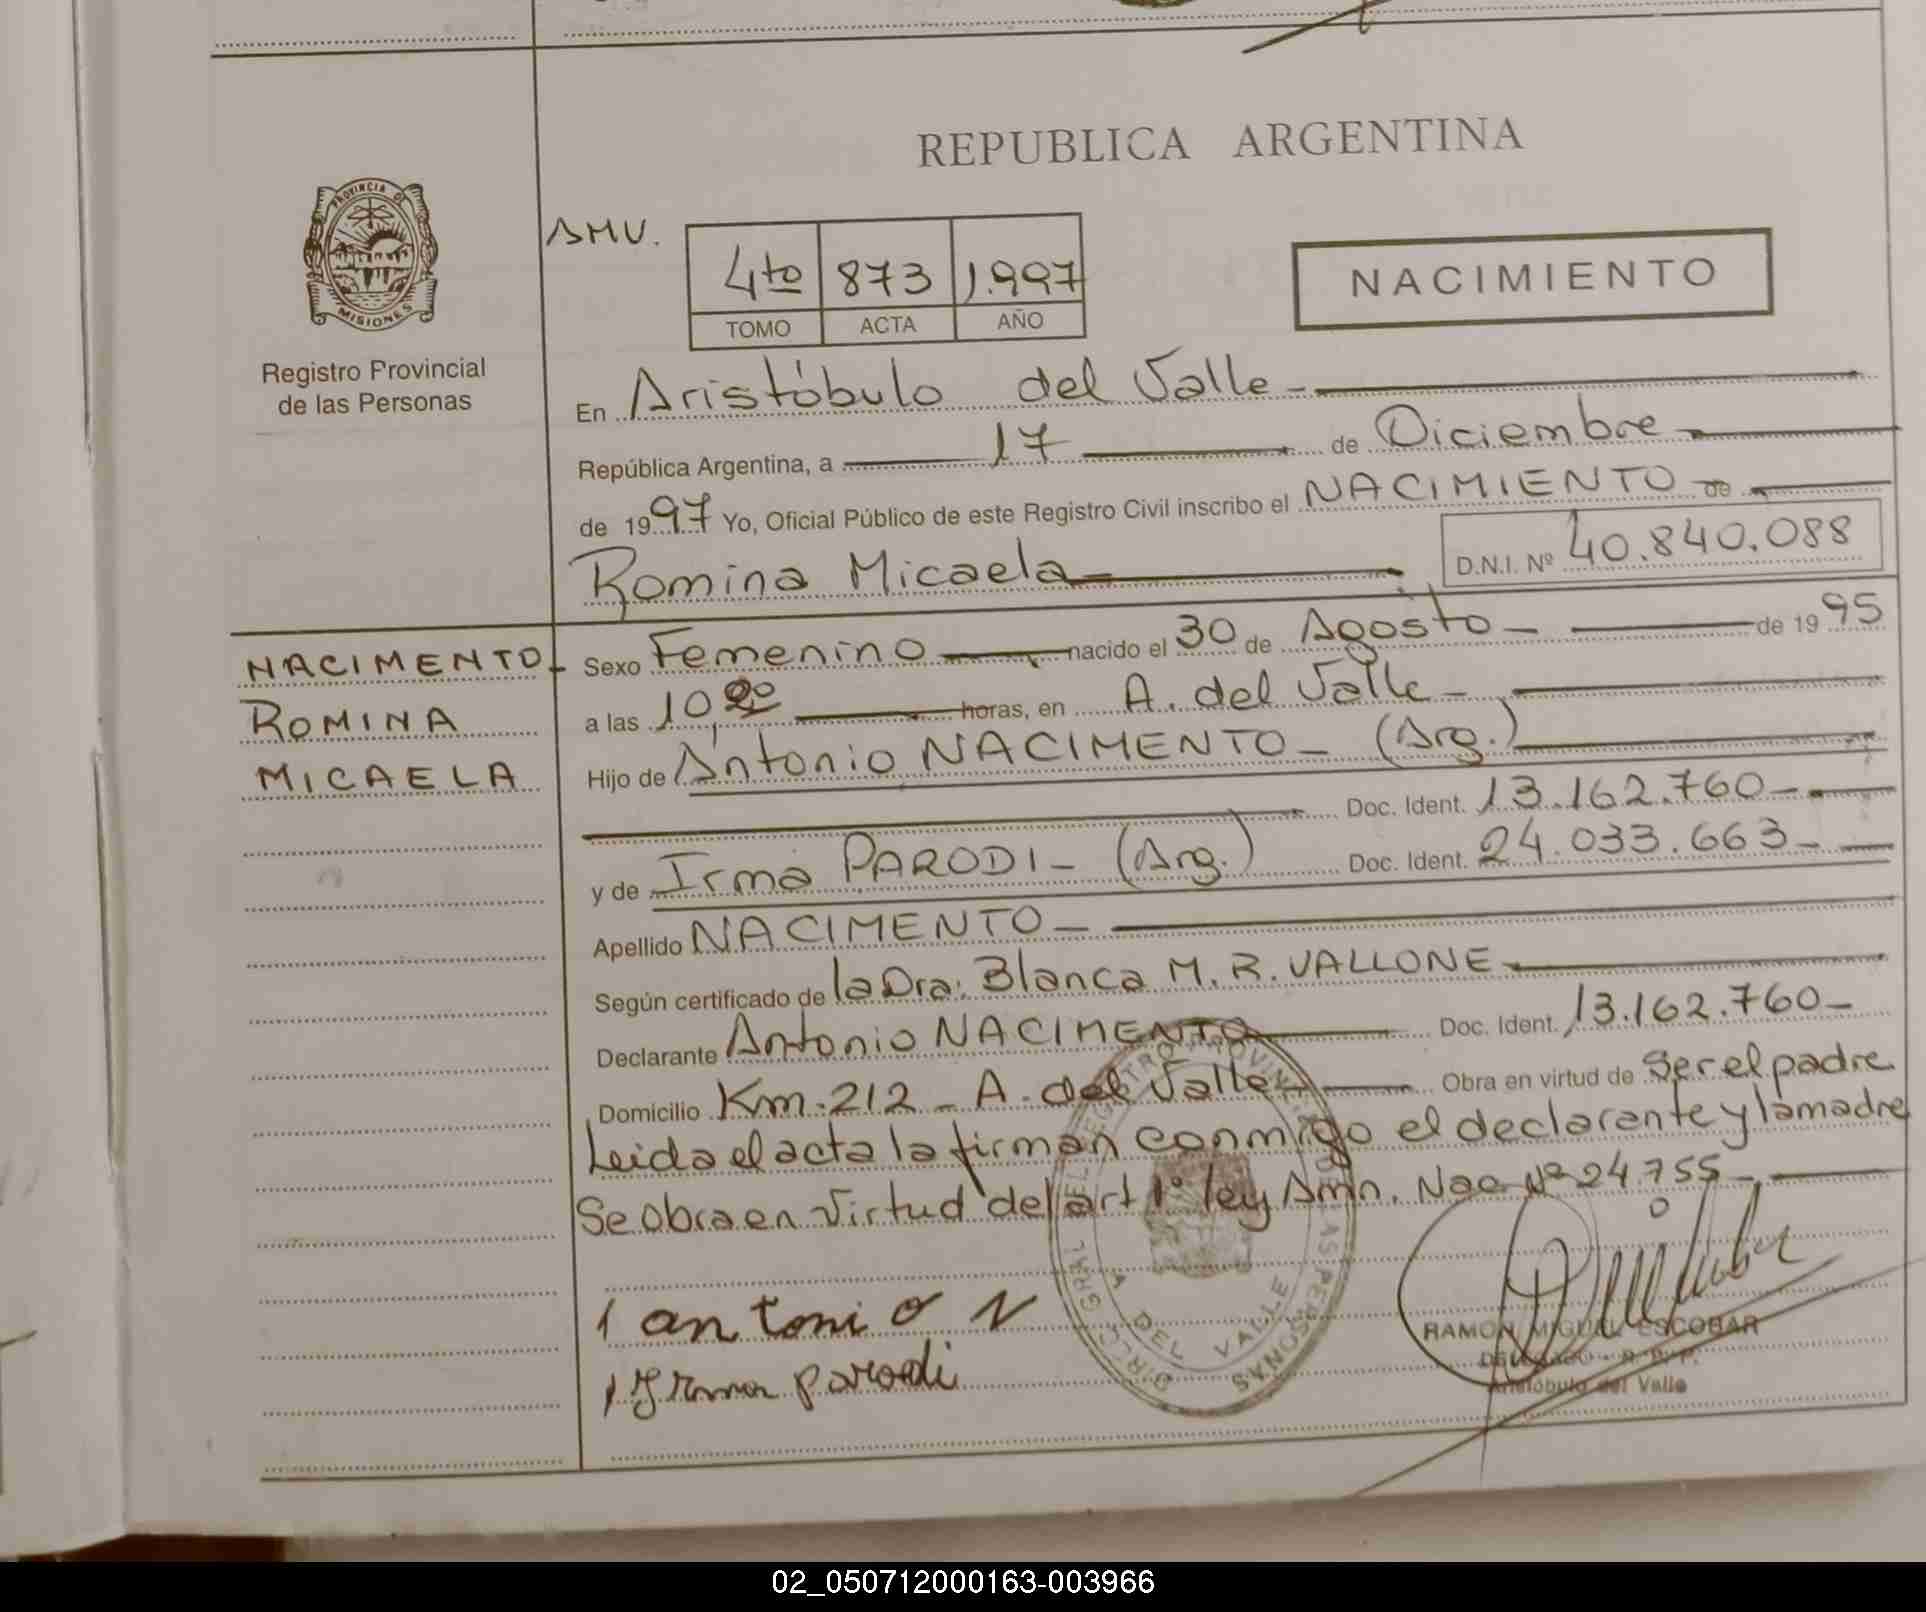 REPUBLICA ARGENTINA
PROVINCIA DE
MISIONES
Registro Provincial
de las Personas
AMV.
4to 873 1.997
TOMO ACTA AÑO
NACIMIENTO
En Aristóbulo del Valle -
República Argentina, a 17 de Diciembre -
de 1997 Yo, Oficial Público de este Registro Civil inscribo el NACIMIENTO de
Romina Micaela - D.N.I. Nº 40.840.088
NACIMENTO -
ROMINA
MICAELA
Sexo Femenino nacido el 30 de Agosto - de 1995
a las 10,20 horas, en A. del Valle -
Hijo de Antonio NACIMENTO - (Arg.)
Doc. Ident. 13.162.760 -
y de Irma PARODI - (Arg.) Doc. Ident. 24.033.663 -
Apellido NACIMENTO -
Según certificado de la Dra: Blanca M. R. VALLONE -
Declarante Antonio NACIMENTO Doc. Ident. 13.162.760 -
Domicilio Km. 212 - A. del Valle - Obra en virtud de ser el padre
Leida el acta la firman conmigo el declarante y la madre
Se obra en virtud del art 1º ley Amn. Nac Nº 24.755 -
antonio N
Irma parodi
A DEL VALLE
RAMON MIGUEL ESCOBAR
DELEGADO - R. P. P.
Aristóbulo del Valle
02_050712000163-003966